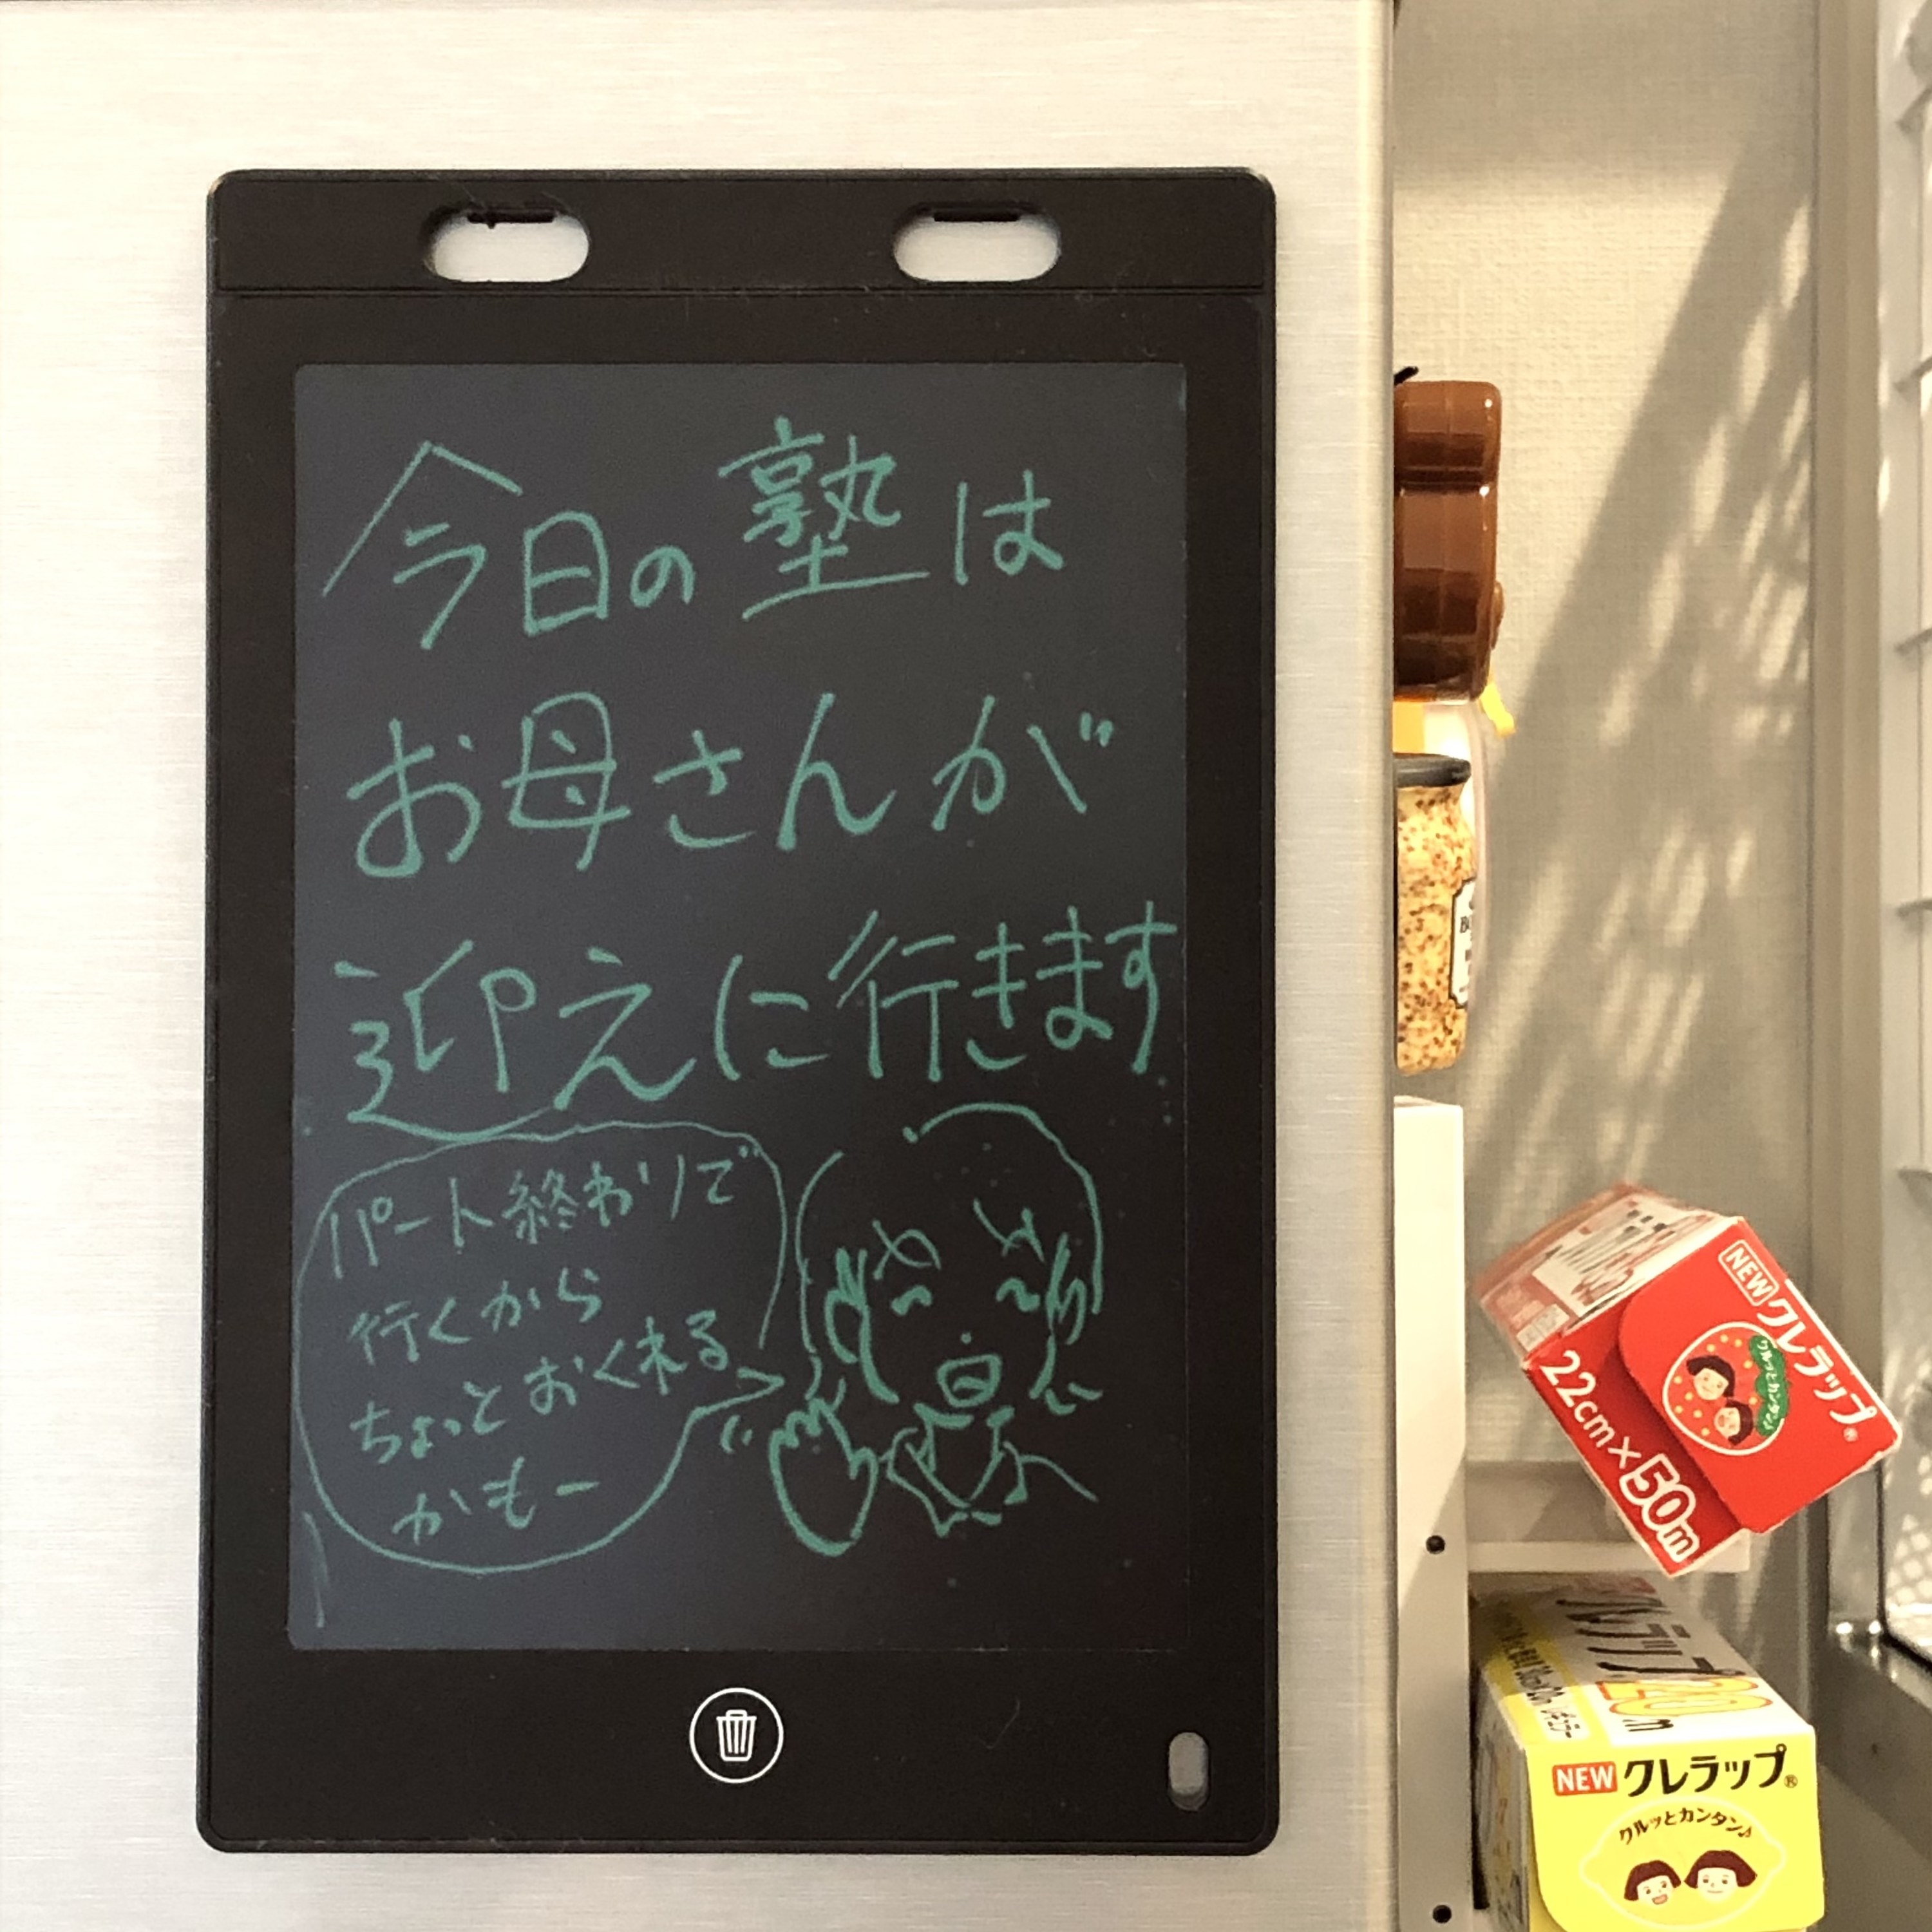 今日の塾は
お母さんが
迎えに行きます
パート終わりで
行くから
ちょっとおくれる
かもー
NEW クレラップ®
クルッとカンタン♪
22cm×50m
20m
NEW クレラップ®
クルッとカンタン♪